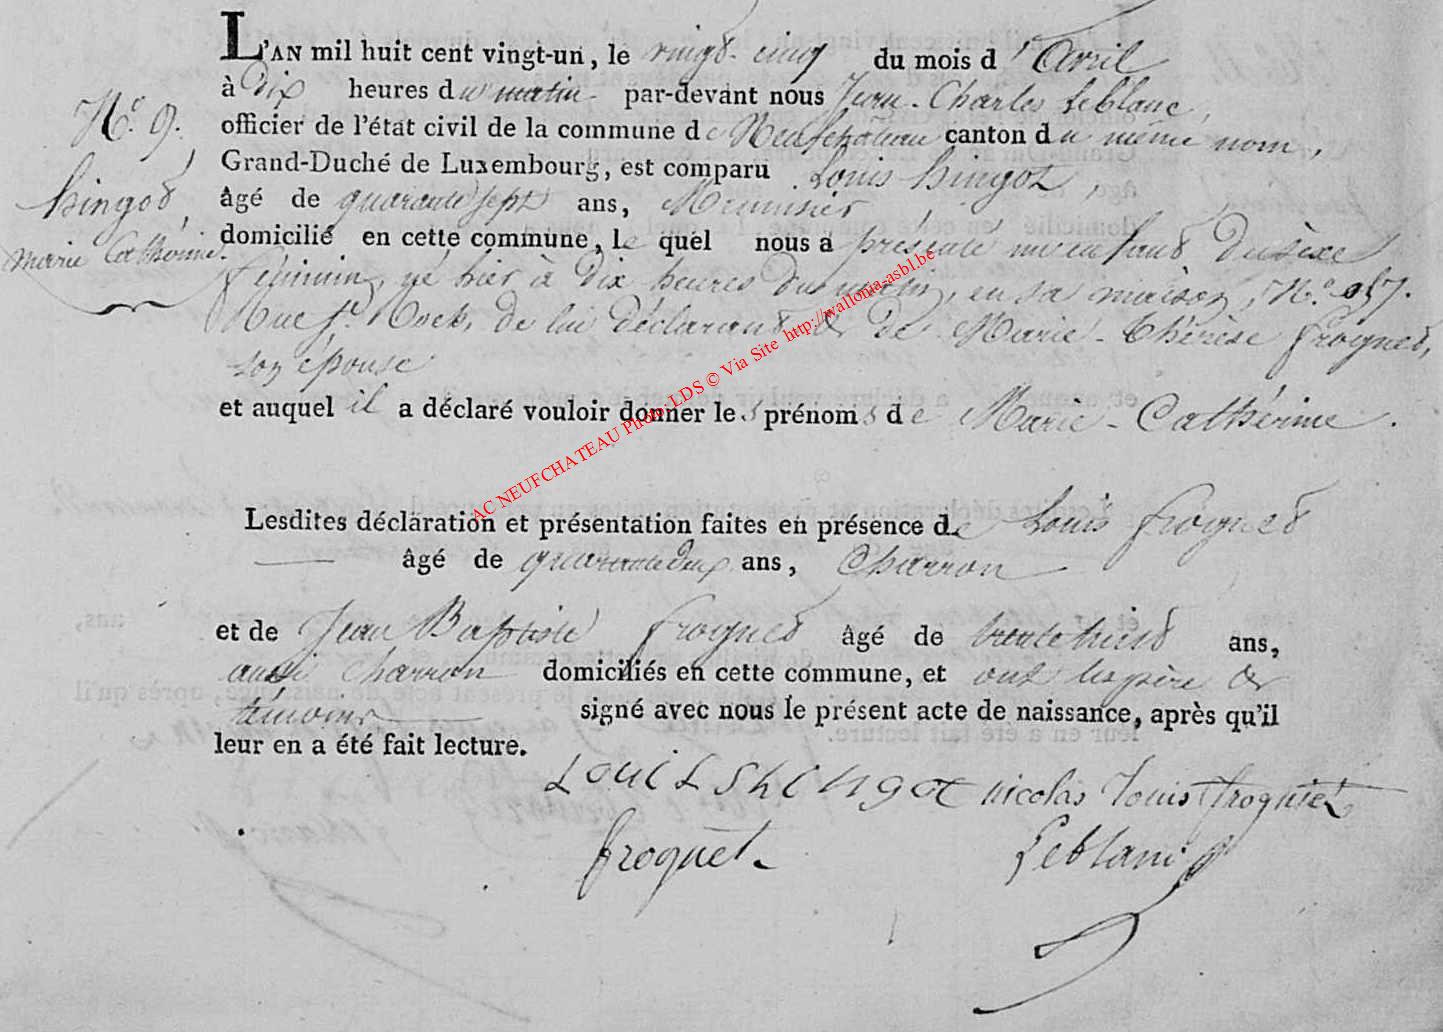 L'AN mil huit cent vingt-un, le vingt-cinq du mois d'Avril
à Dix heures du matin par-devant nous Jean-Charles Leblanc,
N.o 9.
officier de l'état civil de la commune de Neufchateau canton du même nom,
Grand-Duché de Luxembourg, est comparu Louis hingot,
hingot,
âgé de quarante sept ans, Menuisier,
marie Catherine.
domicilié en cette commune, le quel nous a présenté un enfant du sèxe
féminin, né hier à dix heures du matin, en sa maison, N.o 257.
Rue St. Roch, de lui déclarant & de Marie-Thérèse froignet,
son épouse
et auquel il a déclaré vouloir donner les prénoms de Marie-Cathérine.
AC NEUFCHATEAU Photo: LDS © Via Site http://wallonia-asbl.be
Lesdites déclaration et présentation faites en présence de Louis froignet
âgé de quarante deux ans, Charron
et de Jean Baptiste froignet âgé de trente huit ans,
aussi charron domiciliés en cette commune, et ont les père &
témoins signé avec nous le présent acte de naissance, après qu'il
leur en a été fait lecture.
Louis hingot nicolas Louis froguiet
froquet
Leblanc